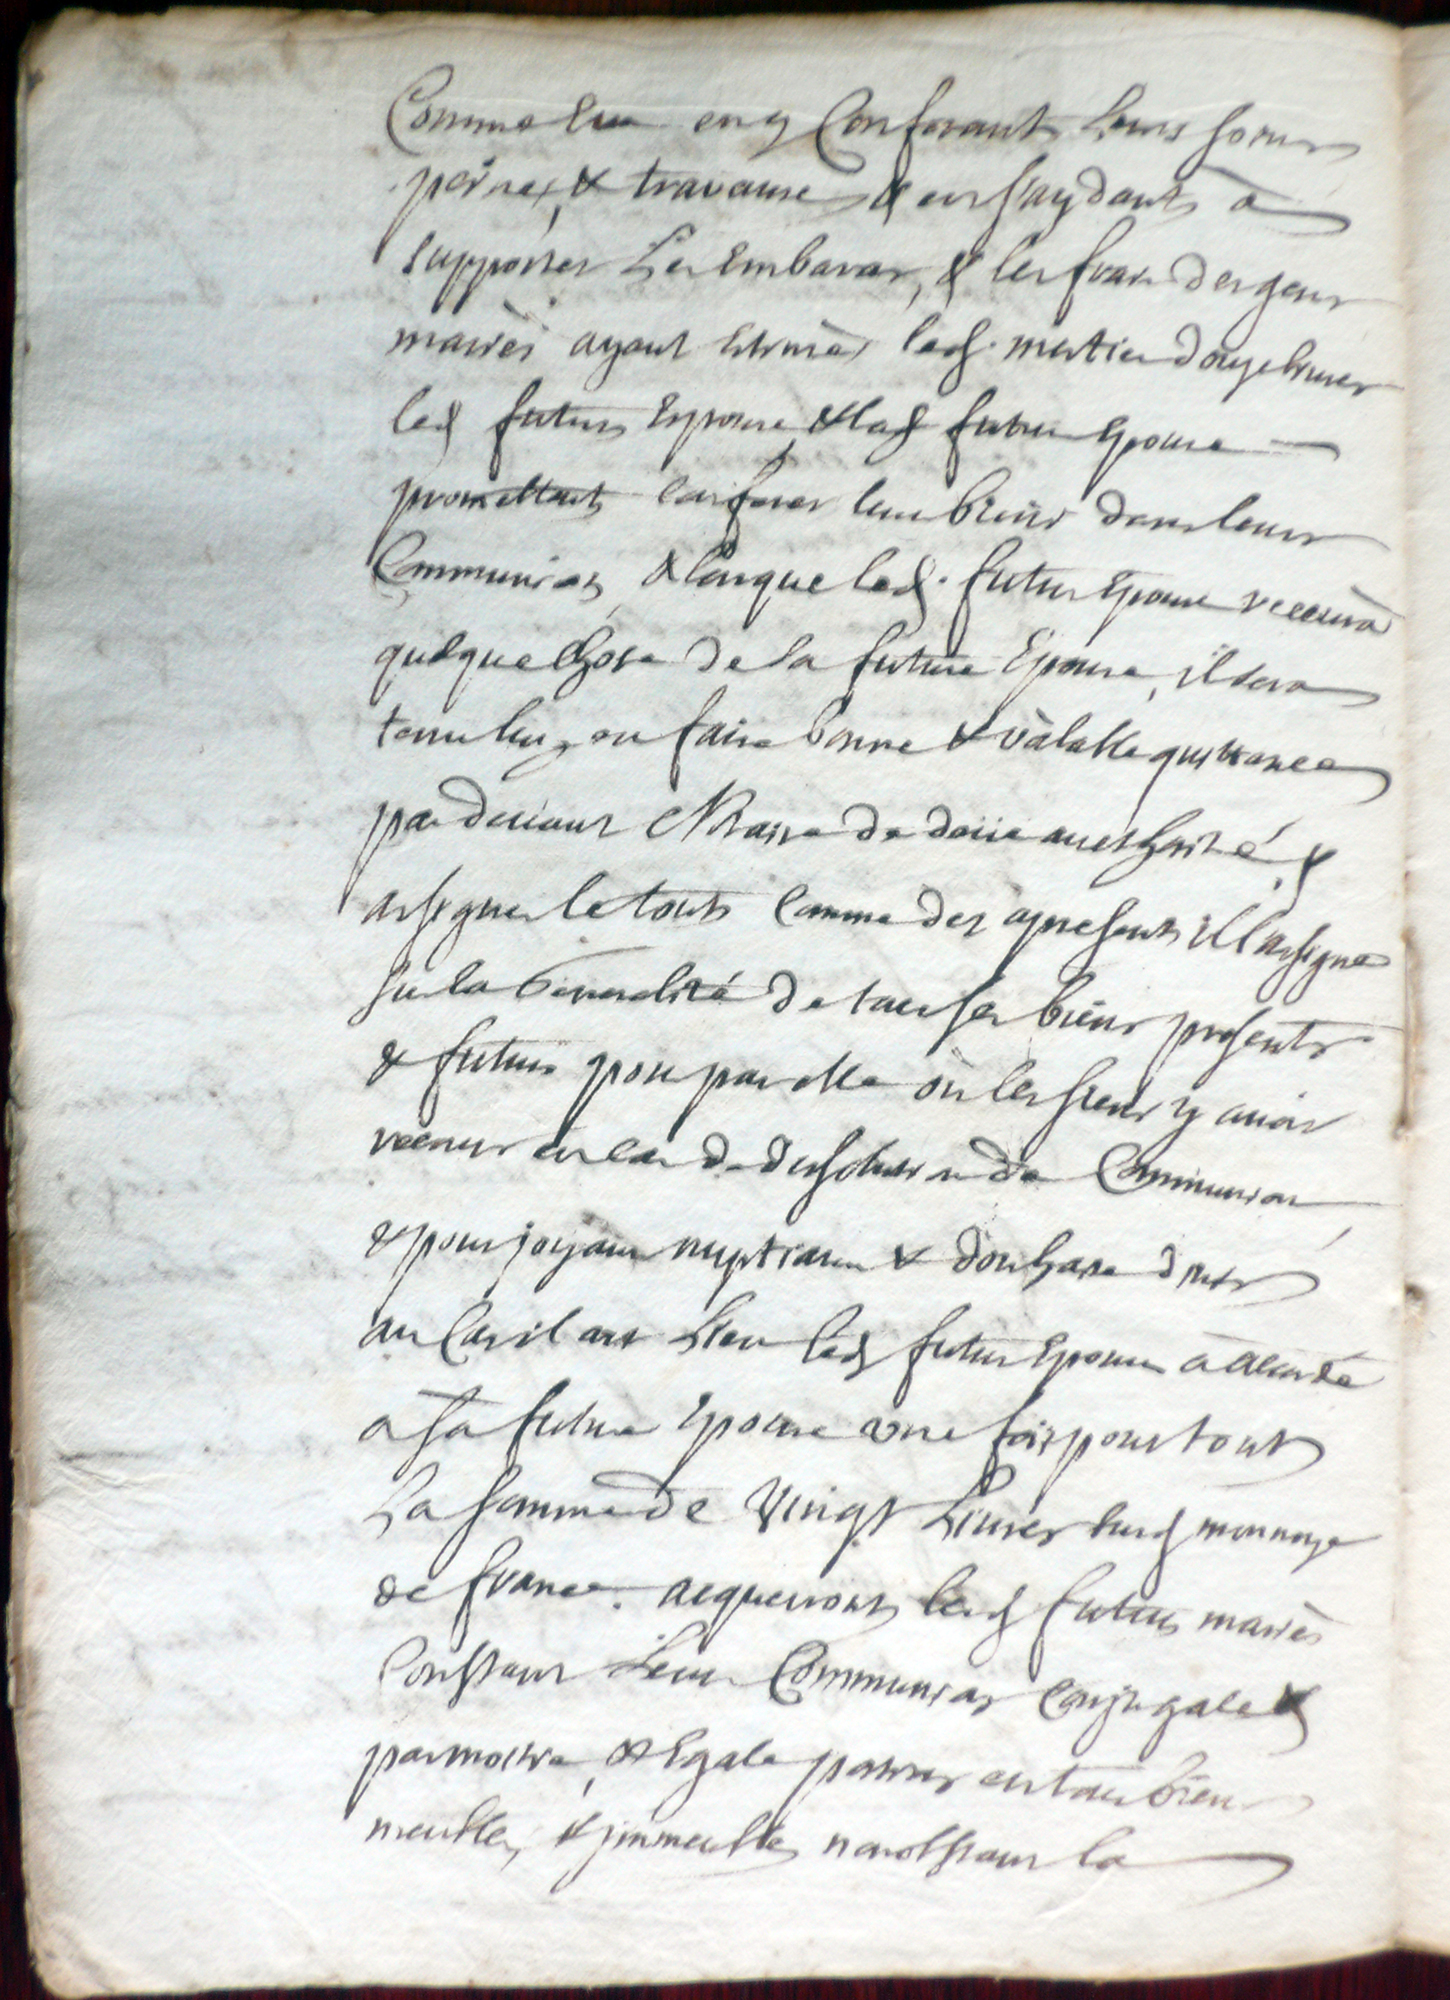 Comme Eux en y Conferant Leurs soins
peines, & travaux & en saydant à
supporter Les Embaras, & les frais des gens
mariès ayant led. mestier
led futur Espoux, & lad future Epouse
promettant conferer leurs biens dans leur
Communion, & lorsque led. futur Epoux recevrà
quelque chose de la future Epouse, il sera
tenu luy en faire bonne & vàlable quittance
par devant Nottaire de deüe authorité, &
assigner le tout comme des àpresent il l'assigne
sur la Generalité de tous ses biens presents
& futurs pour par elle où les siens y avoir
recours en cas de dissolution de Communion
& pour joyaux nuptiaux & douhaire
au Cas il ait Lieu led futur Epoux à accordé
a sa future Epouse une fois pour tout
La somme de Vingt Livres monnoye
de france. acquerront lesd futurs mariès
Constant Leur Communion Conjugale &
par moitié, & Egale portion en tous biens
meubles, & jmmeubles nonobstant la